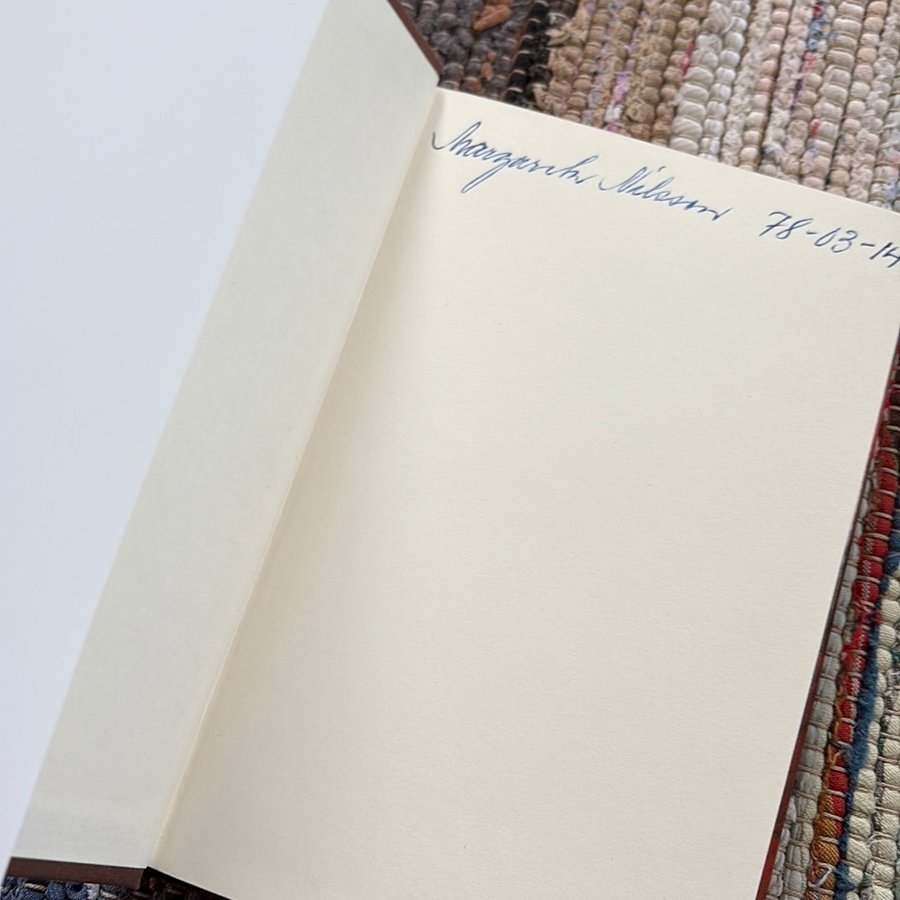 Margareth Nilsson 78-03-14